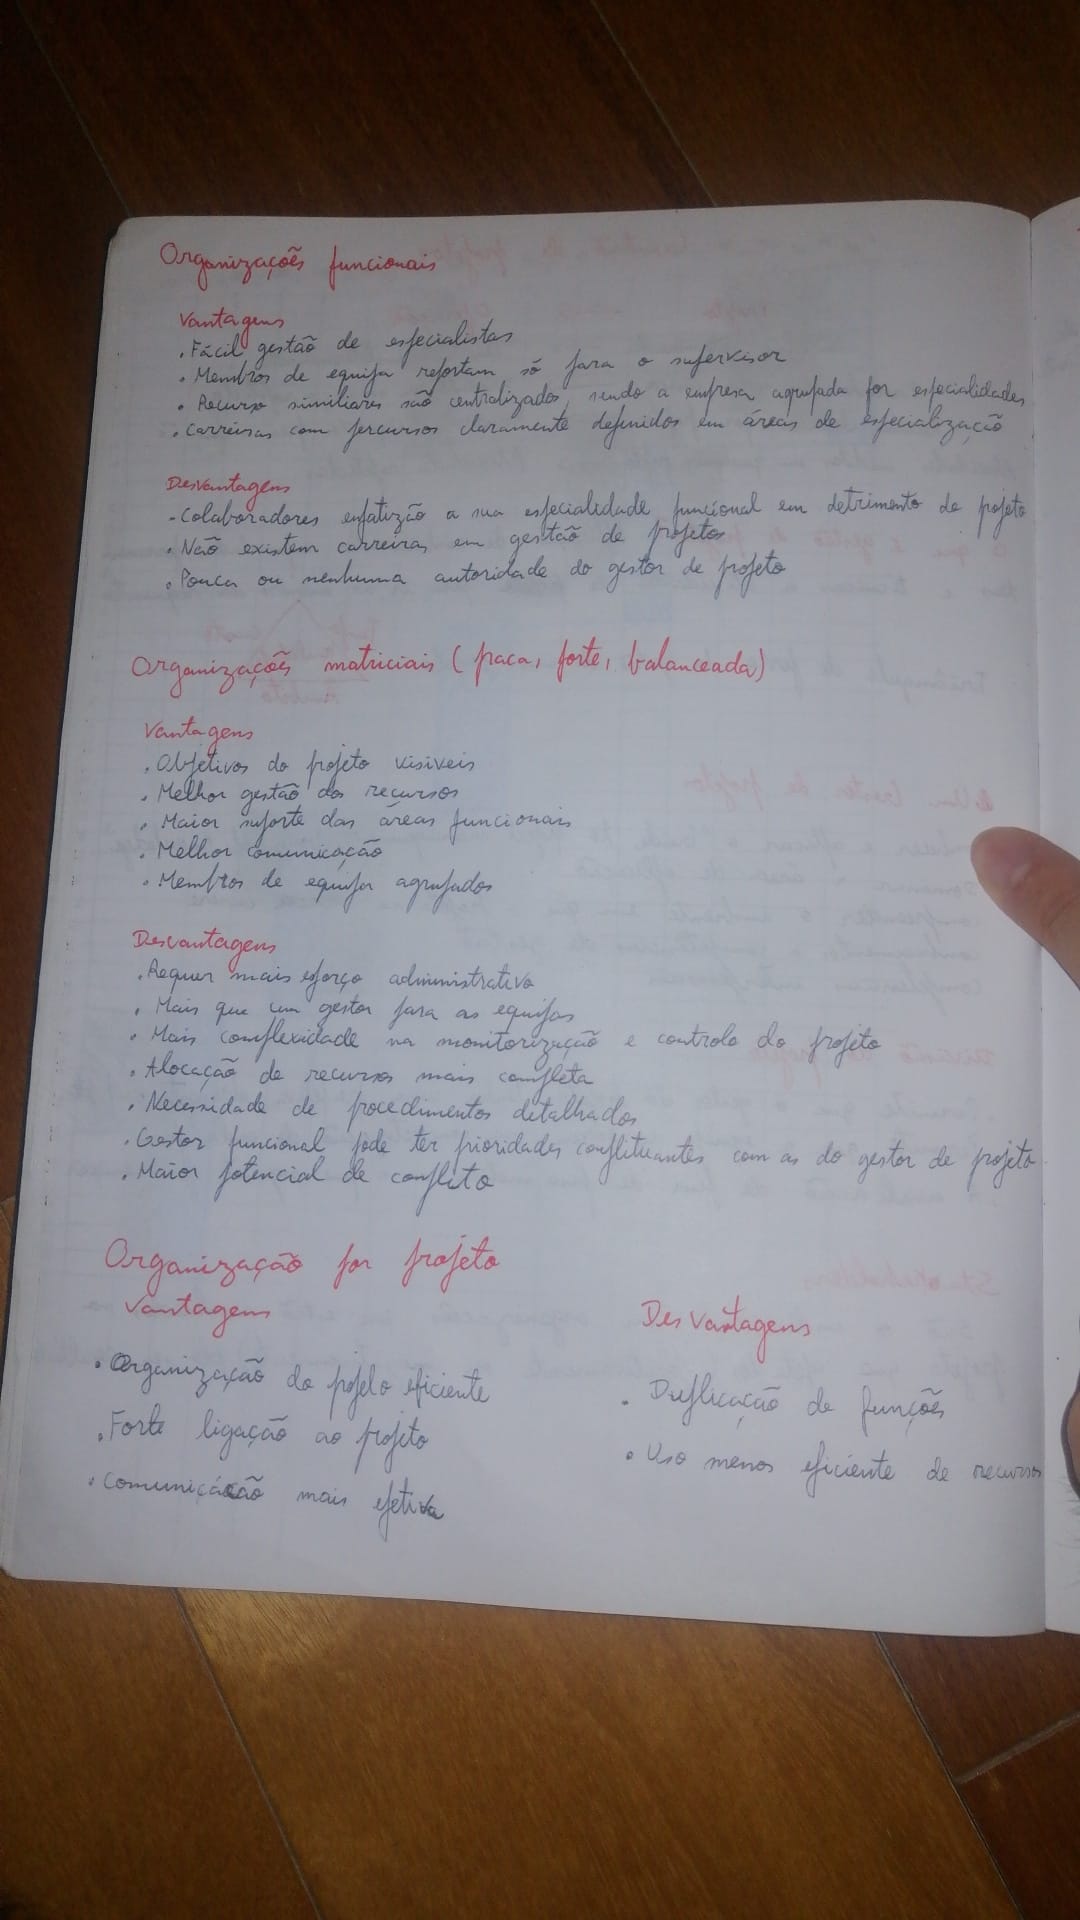 Organizações funcionais
Vantagens
. Fácil gestão de especialistas
. Membros de equipa reportam só para o supervisor
. Recurso similiares são centralizados, sendo a empresa agrupada por especialidades
. Carreiras com percursos claramente definidos em áreas de especialização
Desvantagens
- Colaboradores enfatização a sua especialidade funcional em detrimento do projeto
. Não existem carreiras em gestão de projetos
. Pouca ou nenhuma autoridade do gestor de projeto
Organizações matriciais (fraca, forte, balanceada)
Vantagens
. Objetivos do projeto visiveis
. Melhor gestão dos recursos
. Maior suporte das áreas funcionais
. Melhor comunicação
. Membros de equipa agrupados
Desvantagens
. Requer mais esforço administrativo
. Mais que um gestor para as equipas
. Mais complexidade na monitorização e controlo do projeto
. Alocação de recursos mais completa
. Necessidade de procedimentos detalhados
. Gestor funcional pode ter prioridades conflituantes com as do gestor de projeto
. Maior potencial de conflito
Organização por projeto
Vantagens
. Organização do projeto eficiente
. Forte ligação ao projeto
. Comunicação mais efetiva
Desvantagens
. Duplicação de funções
. Uso menos eficiente de recursos